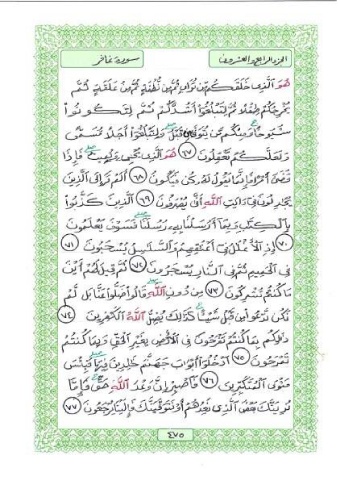 الجزء الرابع والعشرون
سورة غافر
هُوَ الَّذِى خَلَقَكُم مِّن تُرَابٍ ثُمَّ مِن نُّطْفَةٍ ثُمَّ مِنْ عَلَقَةٍ ثُمَّ
يُخْرِجُكُمْ طِفْلًا ثُمَّ لِتَبْلُغُوٓا۟ أَشُدَّكُمْ ثُمَّ لِتَكُونُوا۟
شُيُوخًا وَمِنكُم مَّن يُتَوَفَّىٰ مِن قَبْلُ وَلِتَبْلُغُوٓا۟ أَجَلًا مُّسَمًّى
وَلَعَلَّكُمْ تَعْقِلُونَ ٦٧ هُوَ الَّذِى يُحْىِۦ وَيُمِيتُ فَإِذَا
قَضَىٰٓ أَمْرًا فَإِنَّمَا يَقُولُ لَهُۥ كُن فَيَكُونُ ٦٨ أَلَمْ تَرَ إِلَى الَّذِينَ
يُجَٰدِلُونَ فِىٓ ءَايَٰتِ اللَّهِ أَنَّىٰ يُصْرَفُونَ ٦٩ الَّذِينَ كَذَّبُوا۟
بِالْكِتَٰبِ وَبِمَآ أَرْسَلْنَا بِهِۦ رُسُلَنَا فَسَوْفَ يَعْلَمُونَ
٧٠ إِذِ الْأَغْلَٰلُ فِىٓ أَعْنَٰقِهِمْ وَالسَّلَٰسِلُ يُسْحَبُونَ ٧١
فِى الْحَمِيمِ ثُمَّ فِى النَّارِ يُسْجَرُونَ ٧٢ ثُمَّ قِيلَ لَهُمْ أَيْنَ
مَا كُنتُمْ تُشْرِكُونَ ٧٣ مِن دُونِ اللَّهِ قَالُوا۟ ضَلُّوا۟ عَنَّا بَل لَّمْ
نَكُن نَّدْعُوا۟ مِن قَبْلُ شَيْـًٔا كَذَٰلِكَ يُضِلُّ اللَّهُ الْكَٰفِرِينَ ٧٤
ذَٰلِكُم بِمَا كُنتُمْ تَفْرَحُونَ فِى الْأَرْضِ بِغَيْرِ الْحَقِّ وَبِمَا كُنتُمْ
تَمْرَحُونَ ٧٥ ادْخُلُوٓا۟ أَبْوَٰبَ جَهَنَّمَ خَٰلِدِينَ فِيهَا فَبِئْسَ
مَثْوَى الْمُتَكَبِّرِينَ ٧٦ فَاصْبِرْ إِنَّ وَعْدَ اللَّهِ حَقٌّ فَإِمَّا
نُرِيَنَّكَ بَعْضَ الَّذِى نَعِدُهُمْ أَوْ نَتَوَفَّيَنَّكَ فَإِلَيْنَا يُرْجَعُونَ ٧٧
٤٧٥